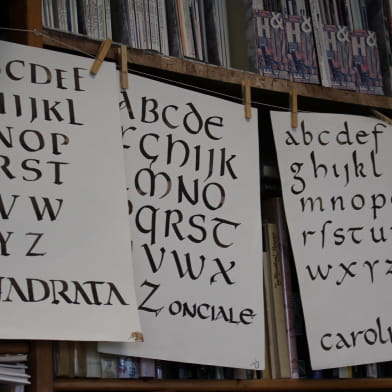 BCDEF
HIJKL
NOP
RST
V W
Y Z
ADRATA
ABCDE
GHIJK
MNO
PQRST
VWX
Z ONCIALE
abcdef
ghijkl
mnop
rſstu
wxyz
carol
H&
H&
H&
H&